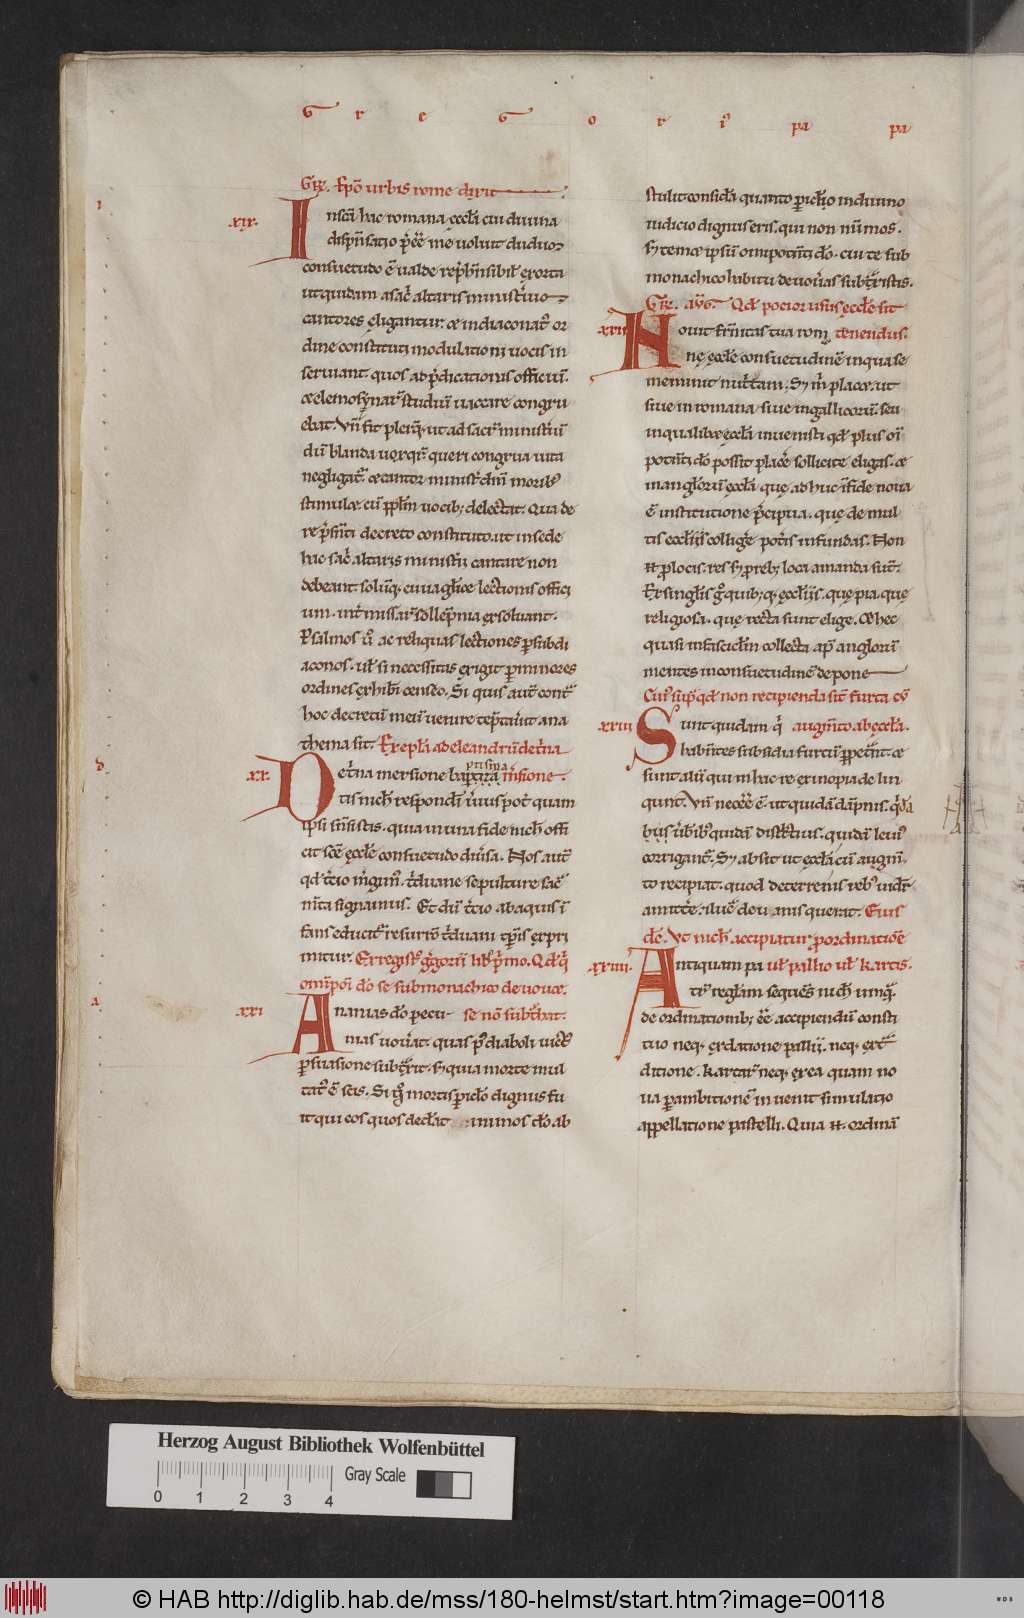 G r e G o r i᷒ pa pa
Gr̄. Ep̄o urbis rome dixit
xix. In sc̄a hac romana eccl̄a cui diuina
dispn̄satio p̄eē me uoluit dudum
consuetudo ē ualde rep̄hn̄sibil̓ exorta
ut quidam a sac̄ altaris minist̓uo
cantores eligantur. & in diaconat᷒ or
dine constituti modulationi uocis in
seruiant. quos ad p̄dicationis officiū.
& elemosynar̄ studiū uaccare congru
ebat. Vn̄ fit pleriq; ut ad sacr̄ minist̓iū
dū blanda uox querit᷒ queri congrua uita
negligat᷒. & cantor minist̓ dm̄ morib᷒
stimulæ. cū pp̄lm uocib; delectat. Qua de
re p̄sn̄ti decreto constituto. ut in sede
hac sac̄ altaris ministri cantare non
debeant. soluq; euuaglicæ lectionis offici
um. int̓ missar̄ sollēpnia exsoluant.
Psalmos ū ac reliquas lectiones p̄ subdi
aconos. ul̓ si necessitas exigit p̄ minores
ordines exhib̄i censeo. Si quis aut̄ cont̓
hoc decretū meū uenire tēptau̓it ana
thema sit. Ex epl̄a ad eleandrū de t̓na
xx. De t̓na mersione baptizā m̓sione.
ptisma
tis nich̓ respond̓i u̓ius pot̓ quam
ipsi sn̄sistis. quia in una fide nich̓ offi
cit sc̄e eccl̄e consuetudo diu̓sa. Nos aut̄
qd̓ t̓cio m̓gim᷒. t̓duane sepulture sac̄
m̄ta signamus. Et dū t̓cio ab aquis ī
fans educit᷒ resurrō t̓duani tp̄is expri
mitur. Ex regist᷒ g̓gorii lib᷒ p̓mo. Qd̓ q̓
omīpōi dō se sub monachico deuouæ.
xxi Ananias dō pecu- se nō subt̓hat.
nias uou̓at. quas p᷒ diaboli uict᷒
p̄suasione subt̓xit. sȝ quia morte mul
tat᷒ ē scis. Si g̓ mortis p̄iclō dignus fu
it qui eos quos ded̓at nūmos dō ab
stulit consid̓a quanto p̄iclo in diuino
iudicio dignus eris. qui non nūmos.
sȝ temæ ipsū omipotn̄ti dō. cui te sub
monachico habitu deuou̓as subt̓xistis.
Gr̄. aug᷒. Qd̓ pocior usus eccl̄e sit
xxii Nouit fr̄nitas tua rom̄ tenendus.
ne eccl̄e consuetudinē in qua se
meminit nut̓tam. Sȝ m̓ placæ. ut
siue in romana siue in gallicorū. seu
in qualibæ eccl̄a inuenisti qd̓ plus om̄i
potn̄ti dō possit plac̓e sollicite eligas. &
in anglorū eccl̄a que ad huc ī fide noua
ē institutione p̄cipua. que de mul
tis eccl̄iis collig̓e pot̓is infundas. Non
n̄ pro locis. res sȝ pro reb; loca amanda sūt.
Ex singl̓is g̓ quib; q; eccl̄iis. que pia. que
religiosa. que recta sunt elige. & hec
quasi in fasciclm̄ collecta ap̄ anglorū
mentes in consuetudinē depone
Cui᷒ sup̄ qd̓ non recipienda sit furta cū
xxiii Sunt quidam q̓ augm̄to ab eccl̄a.
habn̄tes subsidia furtū p̄petn̄t. &
sunt alii qui in hac re ex inopia delin
qunt. Vn̄ necēē ē. ut quidā dāpnis. q̓dā
bus u̓berib᷒ quidā districtius. quidā leui᷒
corrigant᷒. Sȝ absit ut eccl̄a cū augm̄-
to recipiat. quod de terrenis reb᷒ uidet᷒
amitt̓e. & luc̄ de uanis querat. Eius
dē. Vt nich̓ accipiatur pro ordinatiōe
xxiiii. Antiquam pa ul̓ pallio ul̓ kartis.
tr̄ reglam sequēs nich̓ umq̄.
de ordinationib; eē accipiendū consti
tuo neq; ex datione pallii. neq; ex t̓
ditione. kartar̄ neq; ex ea quam no
ua p̄ ambitionē inuenit simulatio
appellatione pastelli. Quia n̄. ordinā
Herzog August Bibliothek Wolfenbüttel
Gray Scale
0 1 2 3 4
© HAB http://diglib.hab.de/mss/180-helmst/start.htm?image=00118